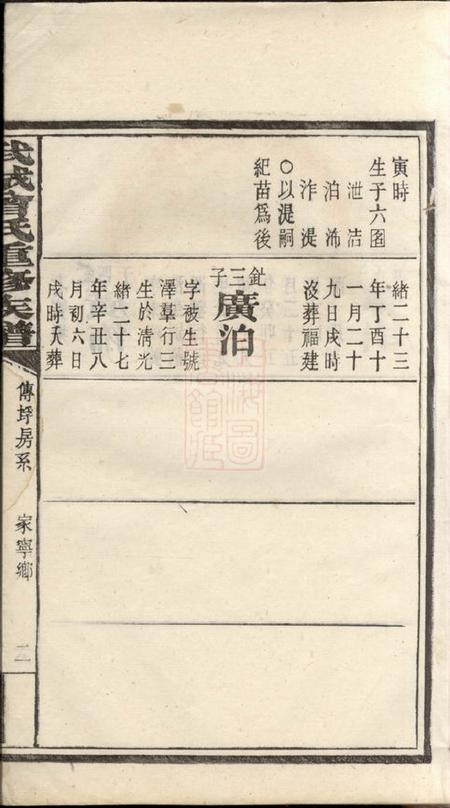 寅時
生于六囝
泄洁
泊沛
泎湜
○以湜嗣
紀苗爲後
緒二十三
年丁酉十
一月二十
九日戌時
沒葬福建
釷三子
廣泊
字被生號
澤羣行三
生於清光
緒二十七
年辛丑八
月初六日
戌時夭葬
武城曾氏重修族譜
傳垺房系
家寧鄉
二